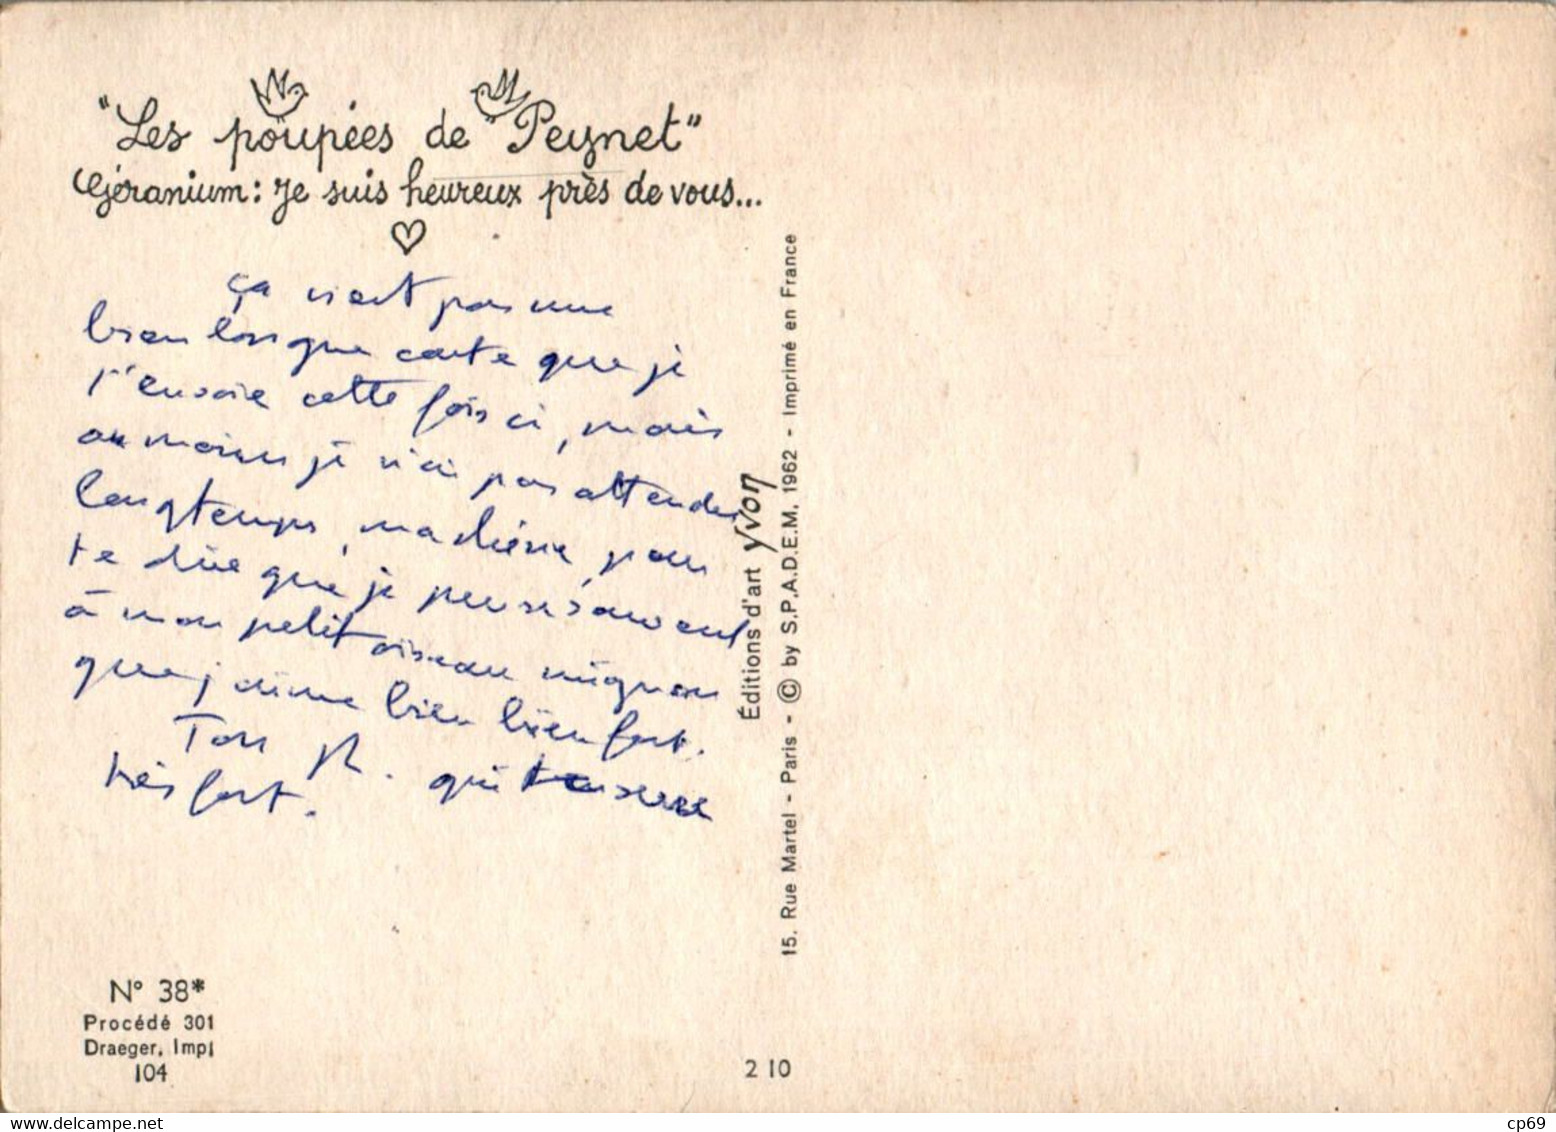 "Les poupées de Peynet"
Géranium : Je suis heureux près de vous...
ça n'est pas une
bien longue carte que je
t'envoie cette fois ci, mais
au moins je n'ai pas attendu
longtemps, ma chérie, pour
te dire que je pense souvent
à mon petit oiseau mignon
que j'aime bien bien fort.
Ton Ph. qui te serre
très fort.
Éditions d'art yvon
15, Rue Martel - Paris - © by S.P.A.D.E.M. 1962 - Imprimé en France
N° 38*
Procédé 301
Draeger, Imp.
104
2 10
delcampe.net
cp69